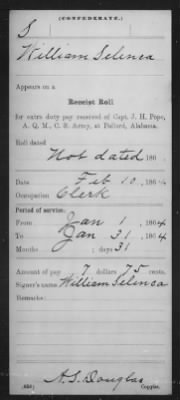 (CONFEDERATE.)
S
William Selinca
Appears on a
Receipt Roll
for extra duty pay received of Capt. J. H. Pope,
A. Q. M., C. S. Army, at Pollard, Alabama.
Roll dated
Not dated, 186 .
Date Feb 10, 1864
Occupation Clerk
Period of service:
From Jan 1, 1864
To Jan 31, 1864
Months ; days 31
Amount of pay 7 dollars 75 cents.
Signer's name William Selinca
Remarks:
A. S. Douglas
Copyist.